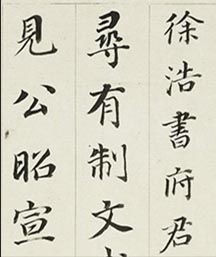 徐浩書府君
尋有制文
見公昭宣